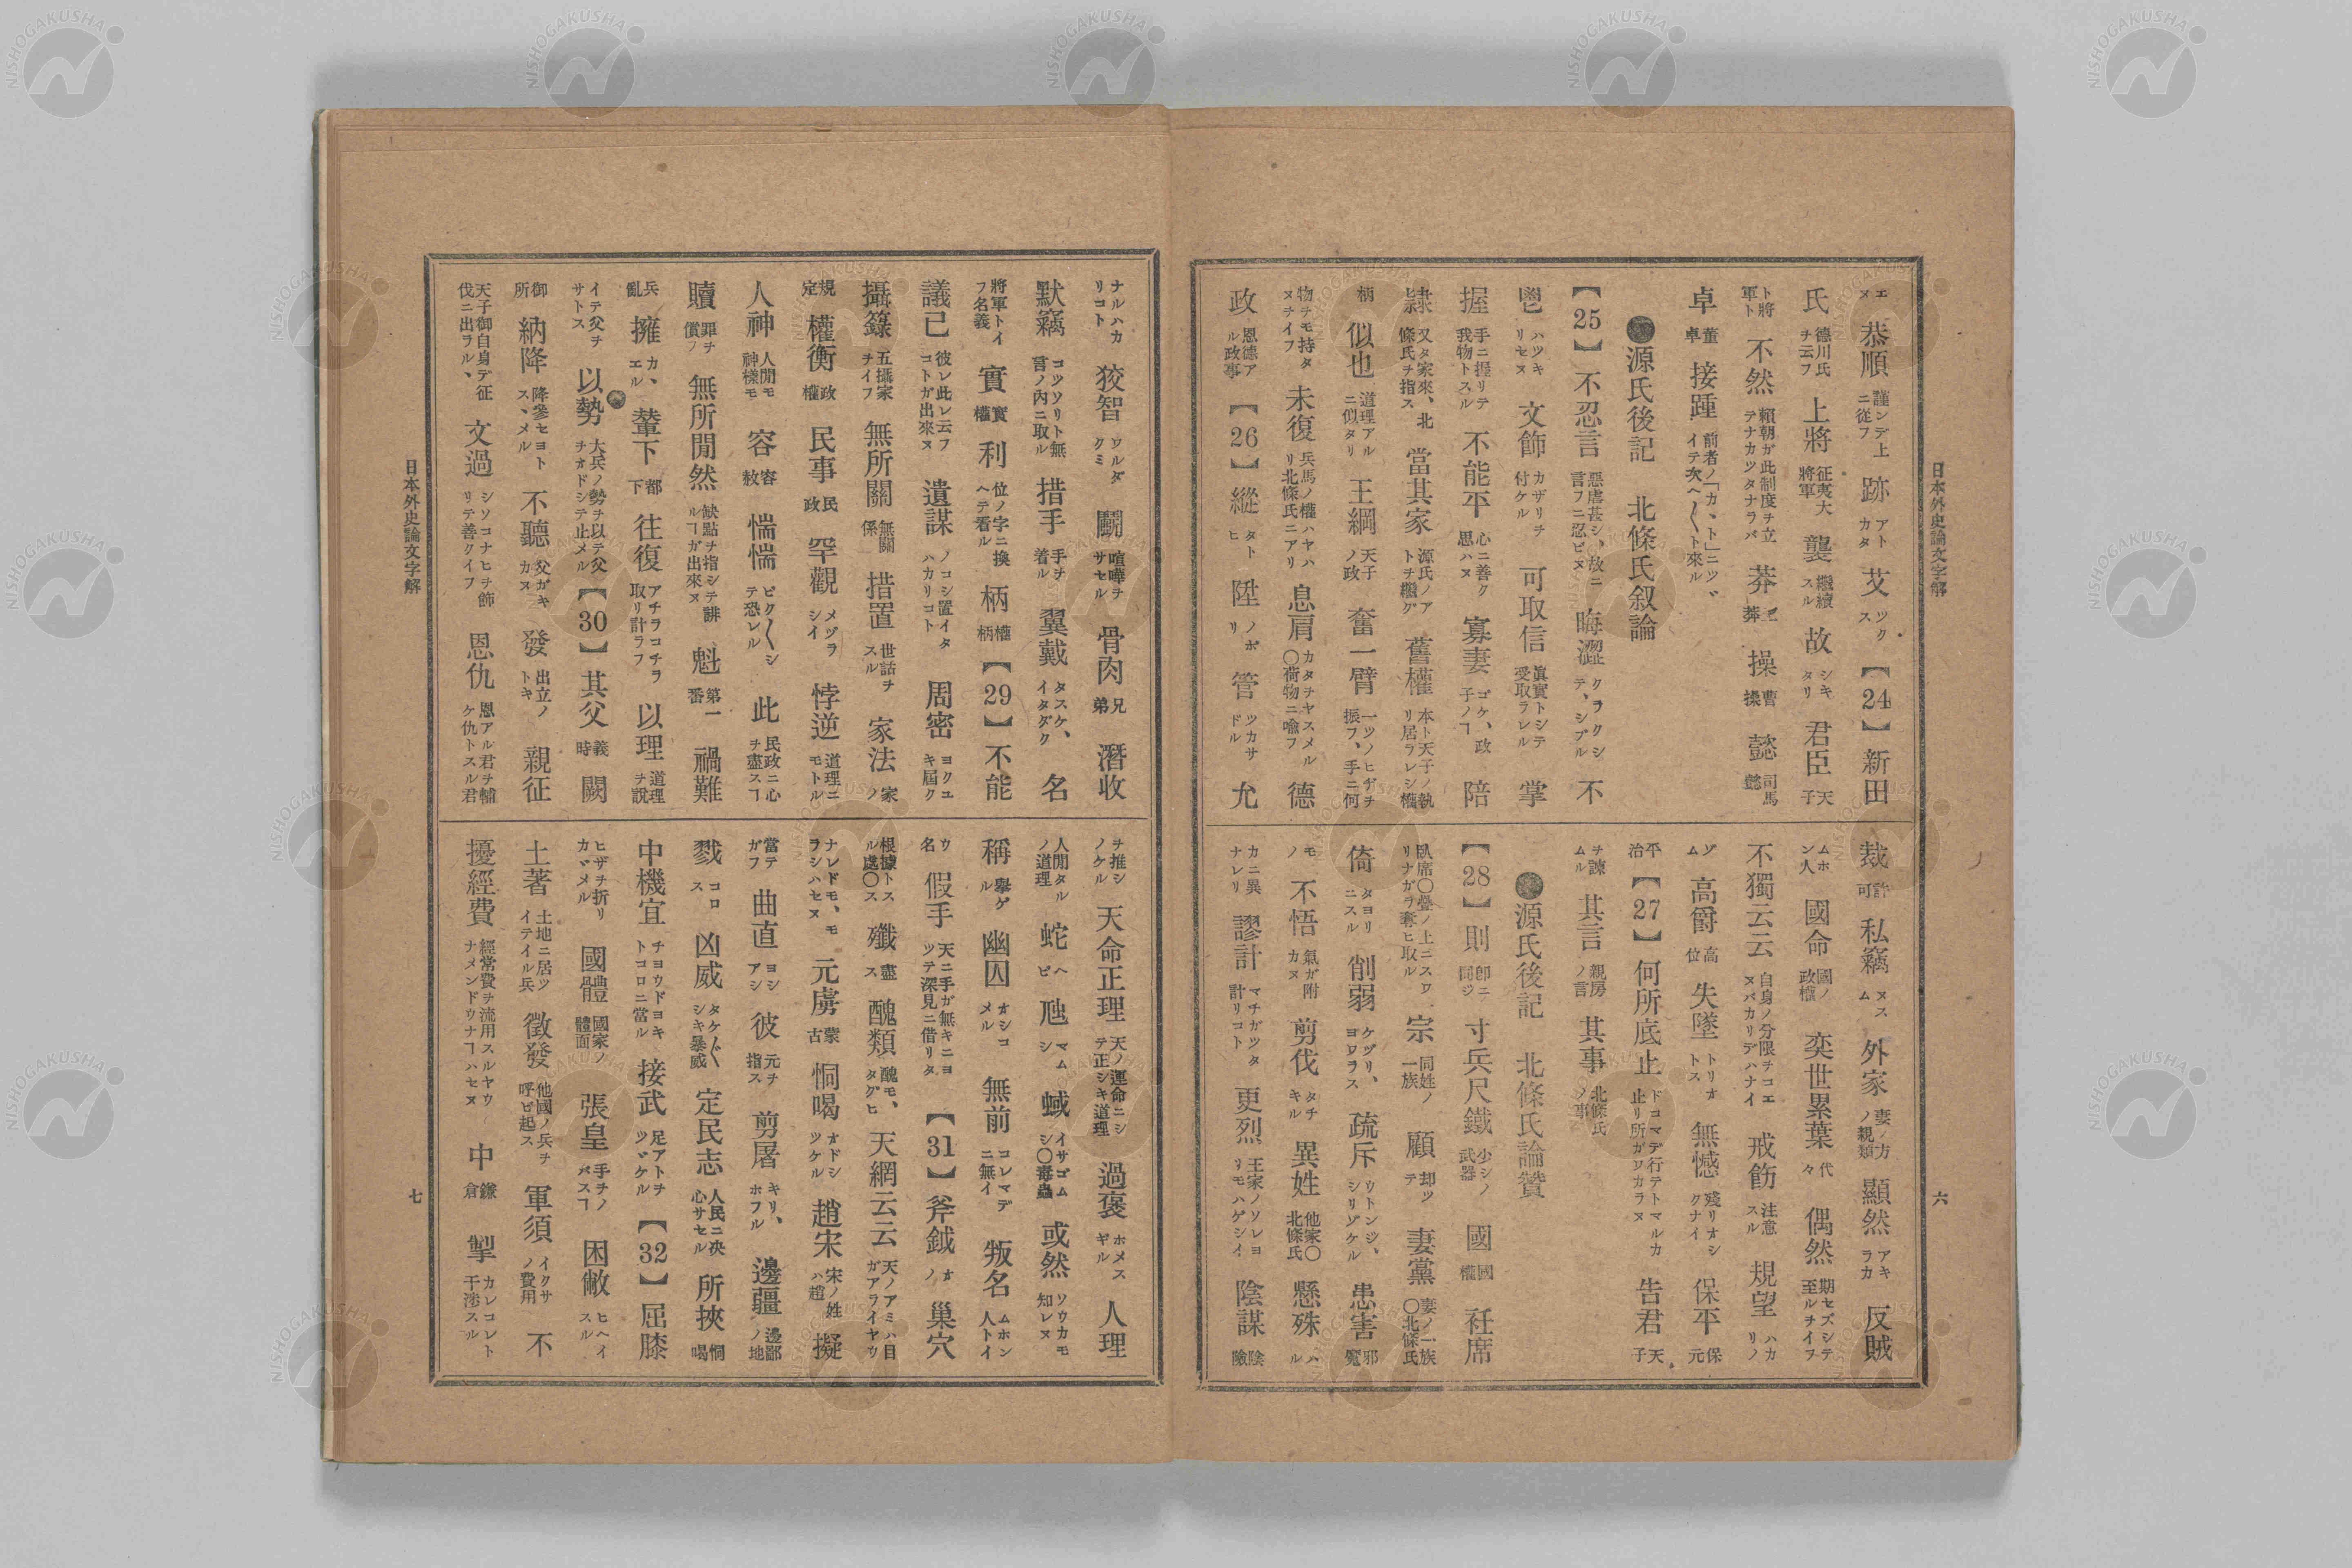 日本外史論文字解
六
エヌ 恭順 謹ンデ上ニ從フ 跡 アトカタ 艾 ツクス 【24】新田
氏 德川氏ヲ云フ 上將 征夷大將軍 襲 繼續スル 故 シキタリ 君臣 天子
ト將軍ト 不然 賴朝ガ此制度ヲ立テナカツタナラバ 莽 王莽 操 曹操 懿 司馬懿
卓 董卓 接踵 前者ノ「カヽト」ニツヾイテ次ヘ〱ト來ル
源氏後記 北條氏叙論
【25】不忍言 惡虐甚シ、故ニ言フニ忍ビヌ 晦澀 クラクシテ、シブル 不
鬯 ハツキリセヌ 文飾 カザリヲ付ケル 可取信 眞實トシテ受取ラレル 掌
握 手ニ握リテ我物トスル 不能平 心ニ善ク思ハヌ 寡妻 ゴケ、政子ノヿ 陪
隷 又タ家來、北條氏ヲ指ス 當其家 源氏ノアトヲ繼グ 舊權 本ト天子ノ執リ居ラレシ權
柄 似也 道理アルニ似タリ 王綱 天子ノ政 奮一臂 一ツノヒヂヲ振フ、手ニ何
物ヲモ持タヌヲイフ 未復 兵馬ノ權ハヤハリ北條氏ニアリ 息肩 カタヲヤスメル〇荷物ニ喩フ 德
政 恩德アル政事 【26】縱 タトヒ 陞 ノボリ 管 ツカサドル 允
裁 許可 私竊 ヌスム 外家 妻ノ方ノ親類 顯然 アキラカ 反賊
ムホン人 國命 國ノ政權 奕世累葉 代々 偶然 期セズシテ至ルヲイフ
不獨云云 自身ノ分限ヲコエヌバカリデハナイ 戒飭 注意スル 規望 ハカリノ
ゾム 高爵 高位 失墜 トリオトス 無憾 殘リオシクナイ 保平 保元
平治 【27】何所底止 ドコマデ行テトマルカ止リ所ガワカラヌ 告君 天子
ヲ諫ムル 其言 親房ノ言 其事 北條氏ノ事
源氏後記 北條氏論贊
【28】則 卽ニ同ジ 寸兵尺鐵 少シノ武器 國 國權 衽席
臥席〇疊ノ上ニスワリナガラ奪ヒ取ル 宗 同姓ノ一族 顧 却ツテ 妻黨 妻ノ一族〇北條氏
倚 タヨリニスル 削弱 ケヅリ、ヨワラス 疏斥 ウトンジ、シリゾケル 患害 邪魔
モノ 不悟 氣ガ附カヌ 剪伐 タチキル 異姓 他家〇北條氏 懸殊 ハル
カニ異ナレリ 謬計 マチガツタ計リコト 更烈 王家ノソレヨリモハゲシイ 陰謀 陰險
ナルハカリコト 狡智 ワルダクミ 鬭 喧嘩ヲサセル 骨肉 兄弟 潛收
默竊 コツソリト無言ノ內ニ取ル 措手 手ヲ着ル 翼戴 タスケ、イタダク 名
將軍トイフ名義 實 實權 利 位ノ字ニ換ヘテ看ル 柄 權柄 【29】不能
議已 彼レ此レ云フコトガ出來ヌ 遺謀 ノコシ置イタハカリコト 周密 ヨクユキ屆ク
攝籙 五攝家ヲイフ 無所關 無關係 措置 世話ヲスル 家法 家ノ
規定 權衡 政權 民事 民政 罕觀 メヅラシイ 悖逆 道理ニモトル
人神 人閒モ神樣モ 容 容赦 惴惴 ビク〱シテ恐レル 此 民政ニ心ヲ盡スヿ
贖 罪ヲ償フ 無所閒然 缺點ヲ指シテ誹ルヿガ出來ヌ 魁 第一番 禍難
兵亂 擁 カヽエル 輦下 都下 往復 アチラコチラ取リ計ラフ 以理 道理ヲ說
イテ父ヲサトス 以勢 大兵ノ勢ヲ以テ父ヲオドシテ止メル 【30】其父 義時 闕
御所 納降 降參セヨトスヽメル 不聽 父ガキカヌ 發 出立ノトキ 親征
天子御自身デ征伐ニ出ラルヽ 文過 シソコナヒヲ飾リテ善クイフ 恩仇 恩アル君ヲ輔ケ仇トスル君
ヲ推シノケル 天命正理 天ノ運命ニシテ正シキ道理 過褒 ホメスギル 人理
人閒タルノ道理 蛇 ヘビ 虺 マムシ 蜮 イサゴムシ〇毒蟲 或然 ソウカモ知レヌ
稱 擧ゲル 幽囚 オシコメル 無前 コレマデニ無イ 叛名 ムホン人トイ
ウ名 假手 天ニ手ガ無キニヨツテ深見ニ借リタ 【31】斧鉞 オノ 巢穴
根據トスル處〇ス 殲 盡ス 醜類 醜モ、タグヒ 天網云云 天ノアミハ目ガアライヤウ
ナレドモ、モラシハセヌ 元虜 蒙古 恫喝 オドシツケル 趙宋 宋ノ姓ハ趙 擬
當テガフ 曲直 ヨシアシ 彼 元ヲ指ス 剪屠 キリ、ホフル 邊疆 邊鄙ノ地
戮 コロス 凶威 タケ〲シキ暴威 定民志 人民ニ決心サセル 所挾 恫喝
中機宜 チヨウドヨキトコロニ當ル 接武 足アトヲツヾケル 【32】屈膝
ヒザヲ折リカヾメル 國體 國家ノ體面 張皇 手ヲノバスヿ 困敝 ヒヘイスル
土著 土地ニ居ツイテイル兵 徵發 他國ノ兵ヲ呼ビ起ス 軍須 イクサノ費用 不
擾經費 經常費ヲ流用スルヤウナメンドウナヿハセヌ 中 鎌倉 掣 カレコレト干涉スル
日本外史論文字解
七